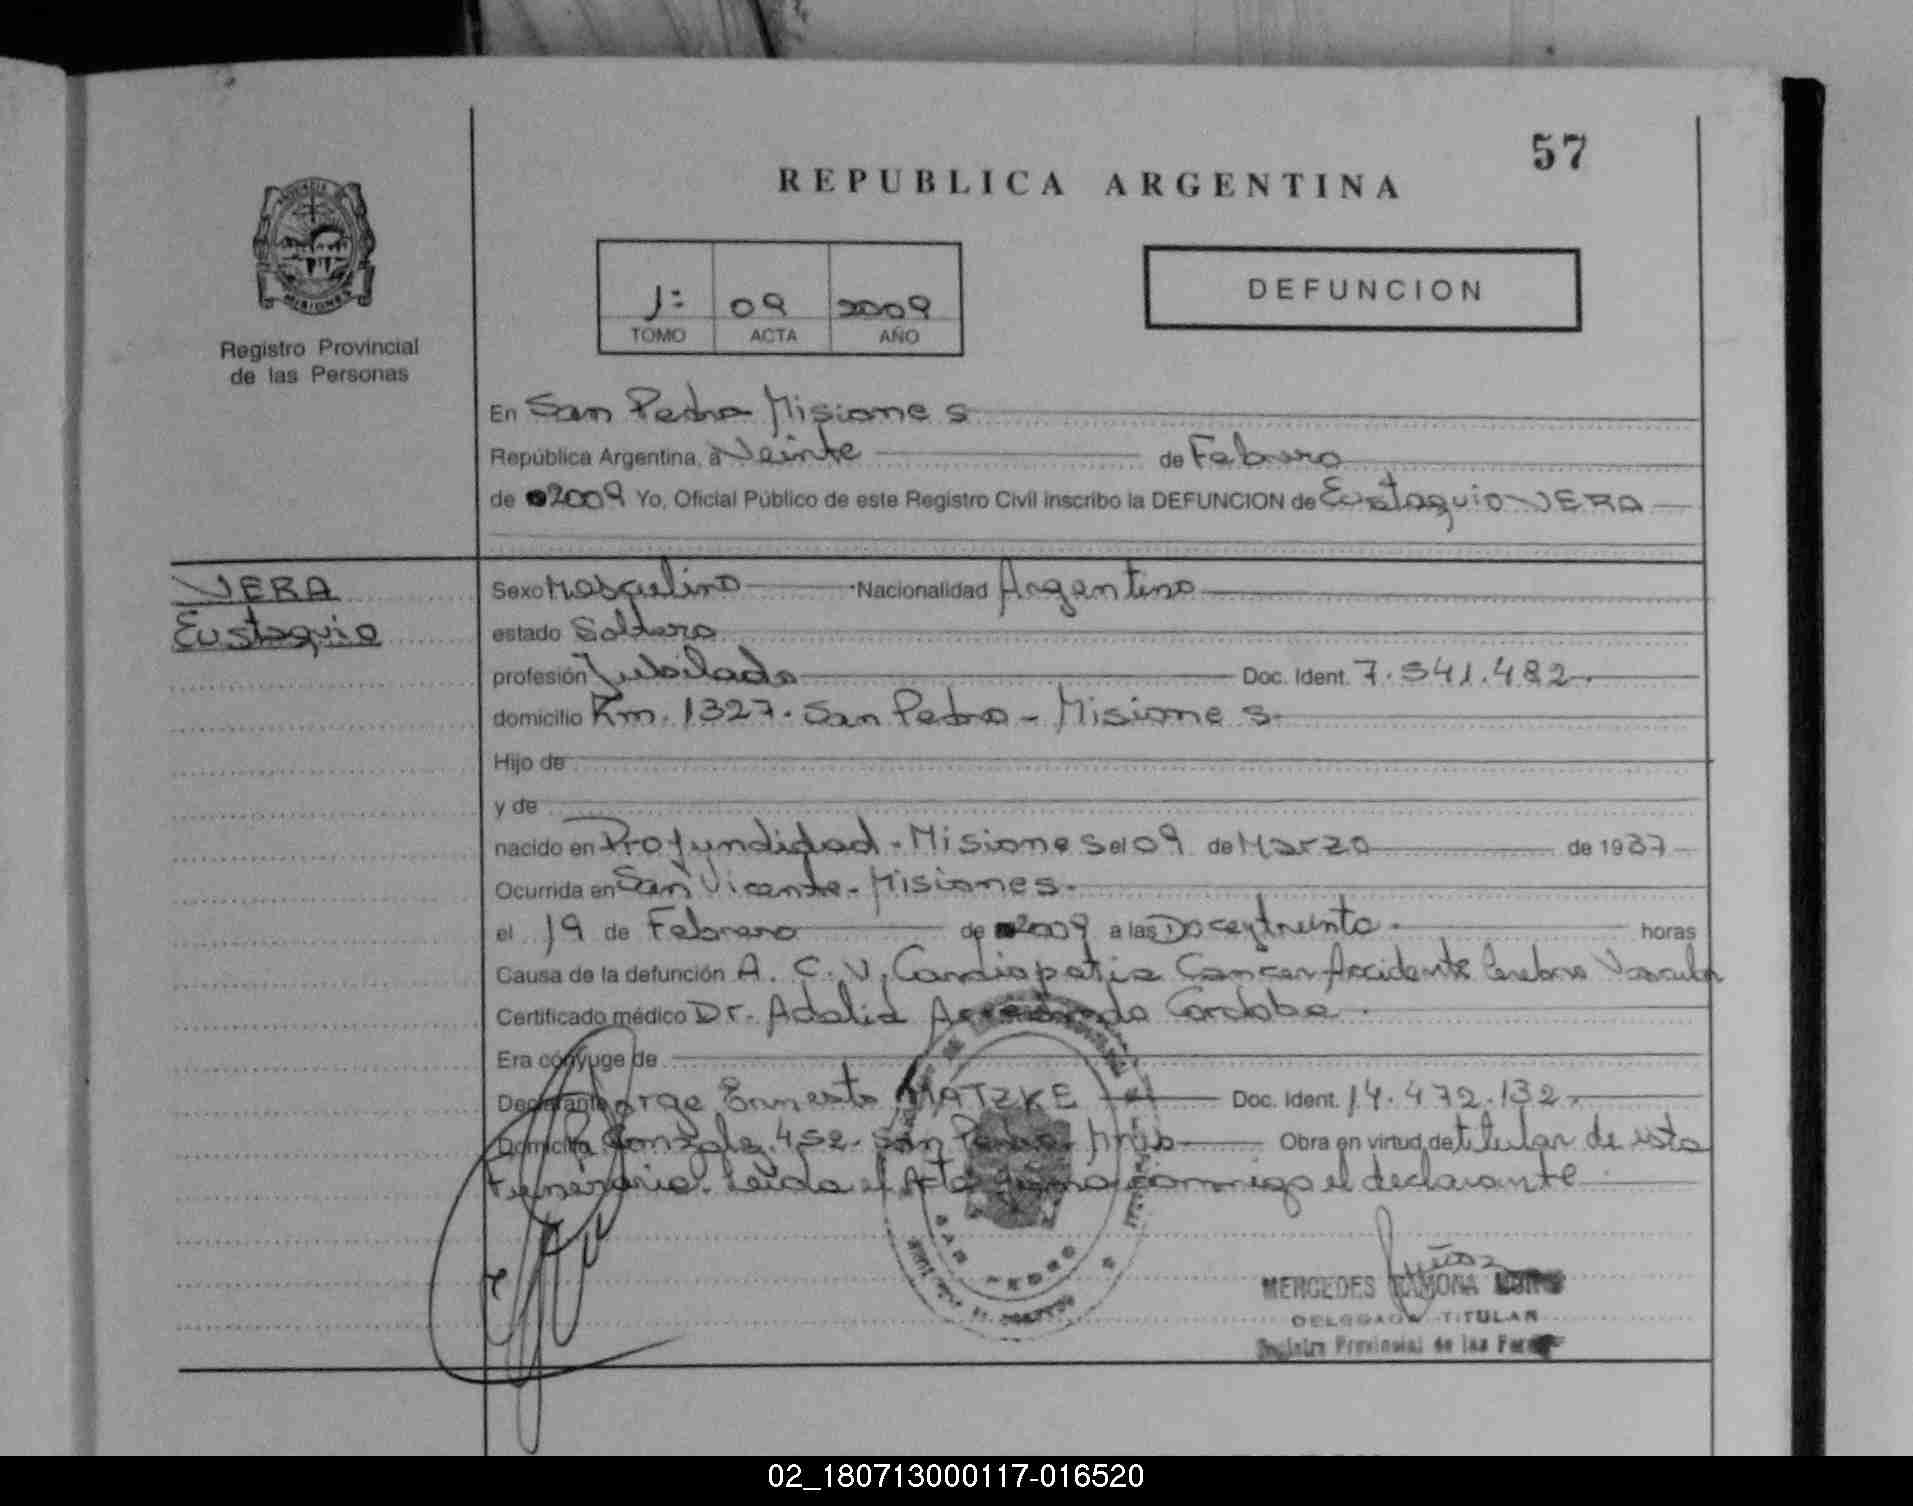 57
REPUBLICA ARGENTINA
MISIONES
Registro Provincial
de las Personas
1: 09 2009
TOMO ACTA AÑO
DEFUNCION
En San Pedro Misiones
República Argentina, a Veinte de Febrero
de 2009 Yo, Oficial Público de este Registro Civil inscribo la DEFUNCION de Eustaquio VERA
VERA
Eustaquio
Sexo Masculino Nacionalidad Argentino
estado Soltero
profesión Jubilado Doc. Ident. 7.541.482.
domicilio Km. 1327. San Pedro - Misiones
Hijo de
y de
nacido en Profundidad - Misiones el 09 de Marzo de 1937
Ocurrida en San Vicente - Misiones.
el 19 de Febrero de 2009 a las Doce y treinta. horas
Causa de la defunción A. C. V, Cardiopatia Cancer Accidente Cerebro Vascular
Certificado médico Dr. Adalid Cordoba.
Era cónyuge de
Declarante Jorge Ernesto MATZKE Doc. Ident. 14.472.132.
Domicilio Gonzalez 452. San Pedro - Mnes Obra en virtud de titular de esta
Funeraria. Leida el Acta firma conmigo el declarante
SAN PEDRO
Muñoz
MERCEDES RAMONA
DELEGADA TITULAR
Registro Provincial de las
02_180713000117-016520